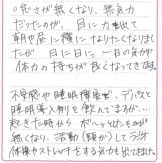 「怠さが無くなり、無気力
だったのが、日に力も出て
朝や昼に横になりたくなりまし
たが 日に日に 一日の気力や
体力の持ちが良くなってきてます。
不安感や睡眠障害で、デパスと
睡眠導入剤を飲んでますが…
起きた時から ボーッとせたものが
無くなり、活動(頭から)してラジオ
体操やストレッチをする気力も出てきました。